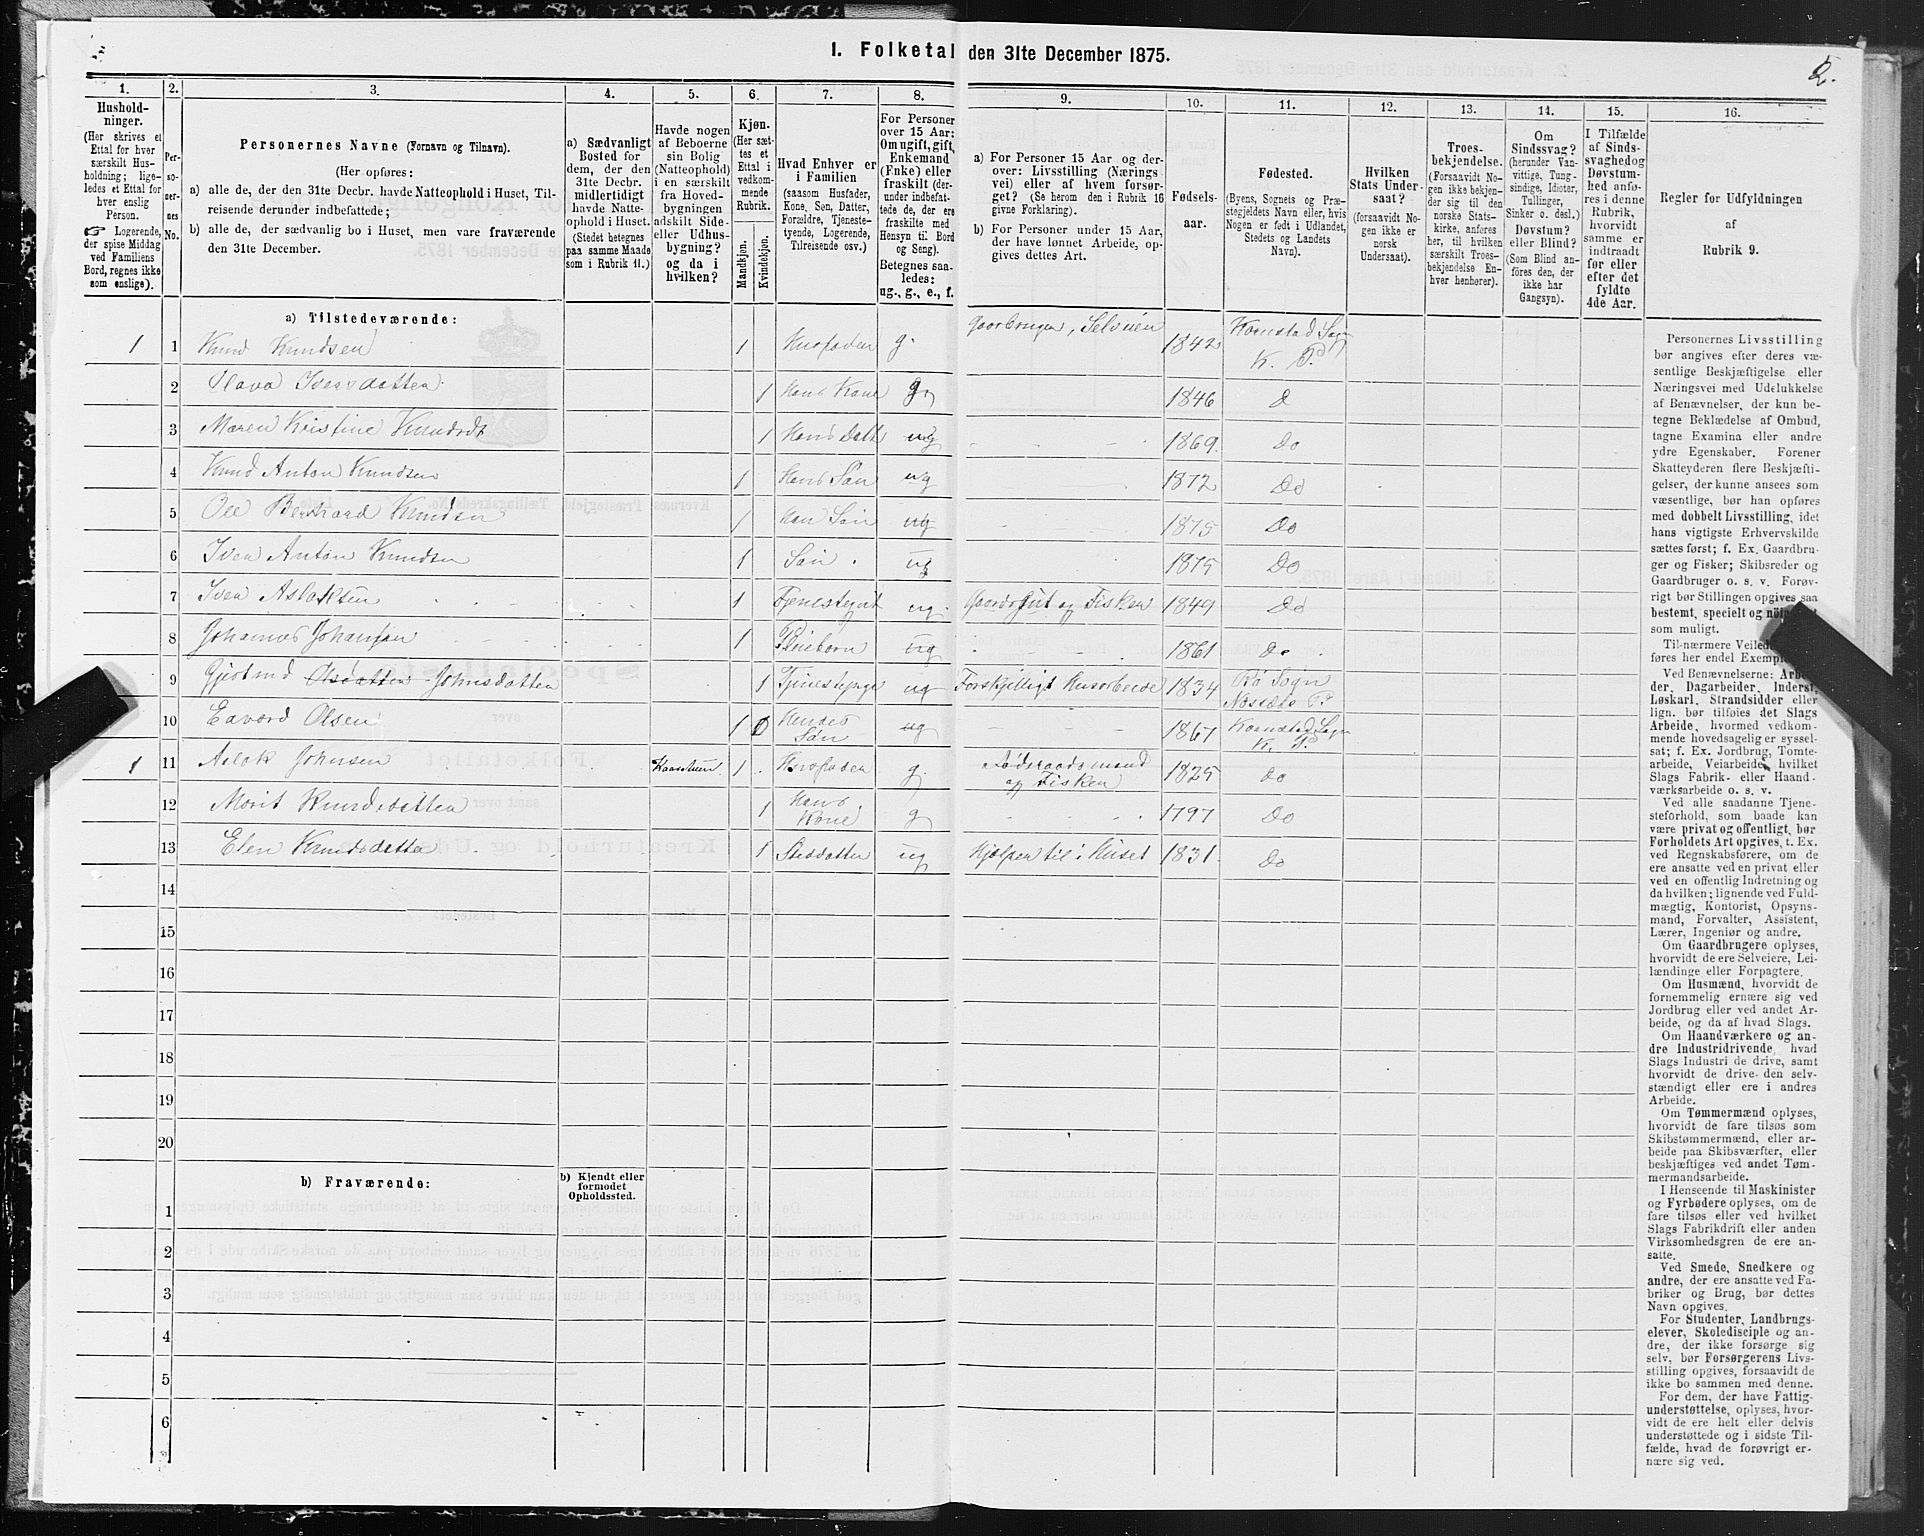 1. Folketal den 31te December 1875.
2.
1.
Hushold-
ninger.
(Her skrives et
Ettal for hver
særskilt Hus-
holdning; lige-
ledes et Ettal for
hver enslig
Person.
☞ Logerende,
der spise Middag
ved Familiens
Bord, regnes ikke
som enslige).
2.
Per-
so-
ner-
nes
No.
3.
Personernes Navne (Fornavn og Tilnavn).
(Her opføres:
a) alle de, der den 31te Decbr. havde Natteophold i Huset, Til-
reisende derunder indbefattede;
b) alle de, der sædvanlig bo i Huset, men vare fraværende
den 31te December.
4.
a) Sædvanligt
Bosted for
dem, der den
31te Decbr.
midlertidigt
havde Natte-
ophold i Huset.
(Stedet betegnes
paa samme Maade
som i Rubrik 11.)
5.
Havde nogen
af Beboerne
sin Bolig
(Natteophold)
i en særskilt
fra Hoved-
bygningen
adskilt Side-
eller Udhus-
bygning?
og da i
hvilken?
6.
Kjøn.
(Her sæt-
tes et
Ettal i
vedkom-
mende
Rubrik.
Mandkjøn.
Kvindekjøn.
7.
Hvad Enhver er
i Familien
(saasom Husfader,
Kone, Søn, Datter,
Forældre, Tjeneste-
tyende, Logerende,
Tilreisende osv.)
8.
For Personer
over 15 Aar:
Om ugift, gift,
Enkemand
(Enke) eller
fraskilt (der-
under indbefat-
tede de, der ere
fraskilte med
Hensyn til Bord
og Seng).
Betegnes saa-
ledes:
ug., g., e., f.
9.
a) For Personer 15 Aar og der-
over: Livsstilling (Nærings-
vei) eller af hvem forsør-
get? (Se herom den i Rubrik 16
givne Forklaring).
b) For Personer under 15 Aar,
der have lønnet Arbeide, op-
gives dettes Art.
10.
Fødsels-
aar.
11.
Fødested.
(Byens, Sognets og Præ-
stegjeldets Navn eller, hvis
Nogen er født i Udlandet,
Stedets og Landets
Navn).
12.
Hvilken
Stats Under-
saat?
(forsaavidt No-
gen ikke er
norsk
Undersaat).
13.
Troes-
bekjendelse.
(Forsaavidt No-
gen ikke bekjen-
der sig til den
norske Stats-
kirke, anføres
her, til hvilken
særskilt Troes-
bekjendelse En-
hver henhører).
14.
Om
Sindssvag?
(herunder Van-
vittige, Tung-
sindige, Idioter,
Tullinger,
Sinker o. desl.)
Døvstum?
eller Blind?
(Som Blind an-
føres den, der
ikke har
Gangsyn).
15.
I Tilfælde
af Sinds-
svaghed og
Døvstum-
hed anfø-
res i denne
Rubrik,
hvorvidt
samme er
indtraadt
før eller
efter det
fyldte
4de Aar.
16.
Regler for Udfyldningen
af
Rubrik 9.
a) Tilstedeværende:
1 1 Knud Knudsen 1 Husfader g. Gaarbruger, Selveier 1842 Kornstad Sogn K. Pd
2 Iversdatter 1 Hans Kone g 1846 D
3 Maren Kristine Knudsdt 1 Hans Datt ug 1869. Do
4 Knud Anton Knudsen 1 Hans Søn ug 1872 Do
5 Ole Bernhard Knudsen 1 Han Søn ug 1875 Do
6 Iver Anton Knudsen 1 Søn ug 1875 Do
7 Iver Aslaksen 1 Tjenestegut ug. Gaardsgut og Fisker 1849 Do
8 Johannes Johansen 1 Pleiebørn ug 1861 Do
9 Gjertrud Olsdatter Johnsdatter 1 Tjenestepige ug Forskjelligt Husarbeide 1834 Rø Sogn Nossets Pd
10 Edvard Olsen 1 Hendes Søn ug 1867 Kornstad Sogn K. Pd
1 11 Aslak Johnsen Kaarstuen 1 Husfader g. Føderaadsmand og Fisker 1825 do
12 Marit Knudsdatter 1 Hans Kone g 1797 Do
13 Elen Knudsdatter 1 Steddatter ug Hjælper til i Huset 1831 Do
14
15
16
17
18
19
20
b) Fraværende:
b) Kjendt eller
formodet
Opholdssted.
1
2
3
4
5
6
Personernes Livsstilling
bør angives efter deres væ-
sentlige Beskjæftigelse eller
Næringsvei med Udelukkelse
af Benævnelser, der kun be-
tegne Beklædelse af Ombud,
tagne Examina eller andre
ydre Egenskaber. Forener
Skatteyderen flere Beskjæfti-
gelser, der kunne ansees som
væsentlige, bør han opføres
med dobbelt Livsstilling, idet
hans vigtigste Erhvervskilde
sættes først; f. Ex. Gaardbru-
ger og Fisker; Skibsreder og
Gaardbruger o. s. v. Forøv-
rigt bør Stillingen opgives saa
bestemt, specielt og
som muligt.
Til nærmere
føres her endel
Ved Benævnelserne:
der, Dagarbeider, Inderst,
Løskarl, Strandsidder eller
lign. bør tilføies det Slags
Arbeide, hvormed vedkom-
mende hovedsagelig er syssel-
sat; f. Ex. Jordbrug, Tomte-
arbeide, Veiarbeide, hvilket
Slags Fabrik- eller Haand-
værksarbeide o. s. v.
Ved alle saadanne Tjene-
steforhold, som baade kan
være privat og offentligt, bør
Forholdets Art opgives, t. Ex.
ved Regnskabsførere, om de
ere ansatte ved en privat eller
ved en offentlig Indretning og
da hvilken; lignende ved Fuld-
mægtig, Kontorist, Opsyns-
mand, Forvalter, Assistent,
Lærer, Ingeniør og andre.
Om Gaardbrugere oplyses,
hvorvidt de ere Selveiere, Lei-
lændinge eller Forpagtere.
Om Husmænd, hvorvidt de
fornemmelig ernære sig ved
Jordbrug eller ved andet Ar-
beide, og da af hvad Slags.
Om Haandværkere og an-
dre Industridrivende, hvad
Slags Industri de drive, samt
hvorvidt de drive den selv-
stændigt eller ere i andres
Arbeide.
Om Tømmermænd oplyses,
hvorvidt de fare tilsøs som
Skibstømmermænd, eller ar-
beide paa Skibsværfter, eller
beskjæftiges ved andet Tøm-
mermandsarbeide.
I Henseende til Maskinister
og Fyrbødere oplyses, om de
fare tilsøs eller ved hvilket
Slags Fabrikdrift eller anden
Virksomhedsgren de ere an-
satte.
Ved Smede, Snedkere og
andre, der ere ansatte ved Fa-
briker og Brug, bør dettes
Navn opgives.
For Studenter, Landbrugs-
elever, Skoledisciple og an-
dre, der ikke forsørge sig
selv, bør Forsørgerens Livs-
stilling opgives, forsaavidt de
ikke bo sammen med denne.
For dem, der have Fattig-
understøttelse, oplyses, hvor-
vidt de ere helt eller delvis
understøttede og i sidste Til-
fælde, hvad de forøvrigt er-
nære sig ved.